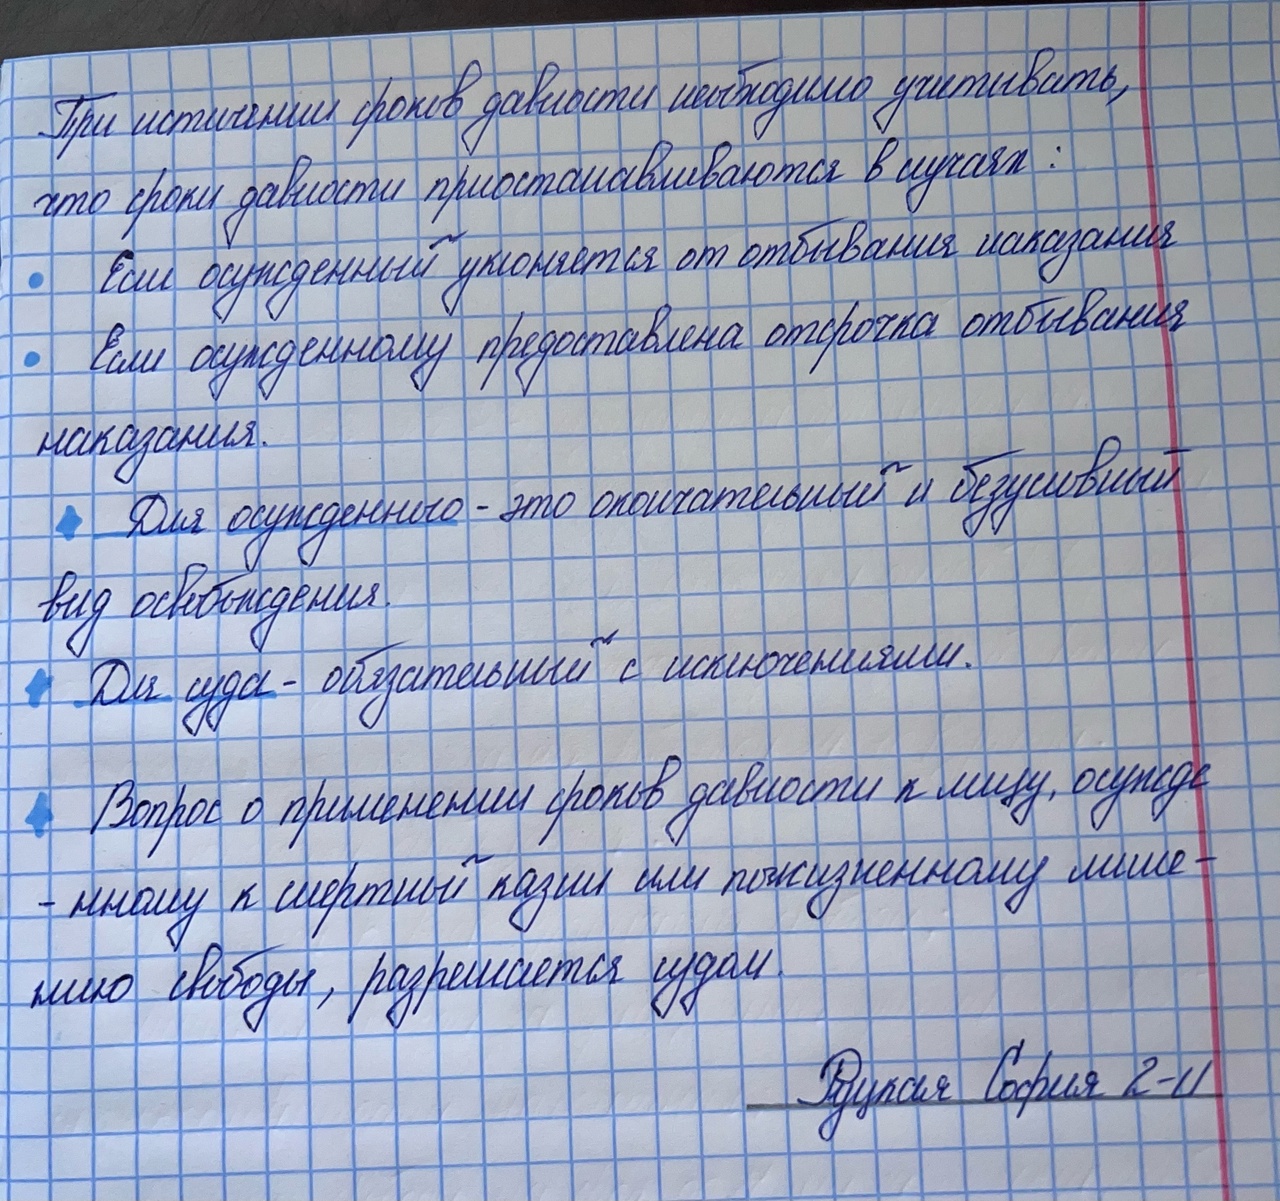 При истичении сроков давности необходимо учитывать,
что сроки давности приостанавливаются в случаях :
• Если осужденный уклоняется от отбывания наказания
• Если осужденному предоставлена отсрочка отбывания
наказания.
Для осужденного - это окончательный и безусловный
вид освобождения.
Для суда - обязательный с исключениями.
Вопрос о применении сроков давности к лицу, осужде
- нному к смертный казни или пожизненному лише-
нию свободы, разрешается судом.
София 2-11